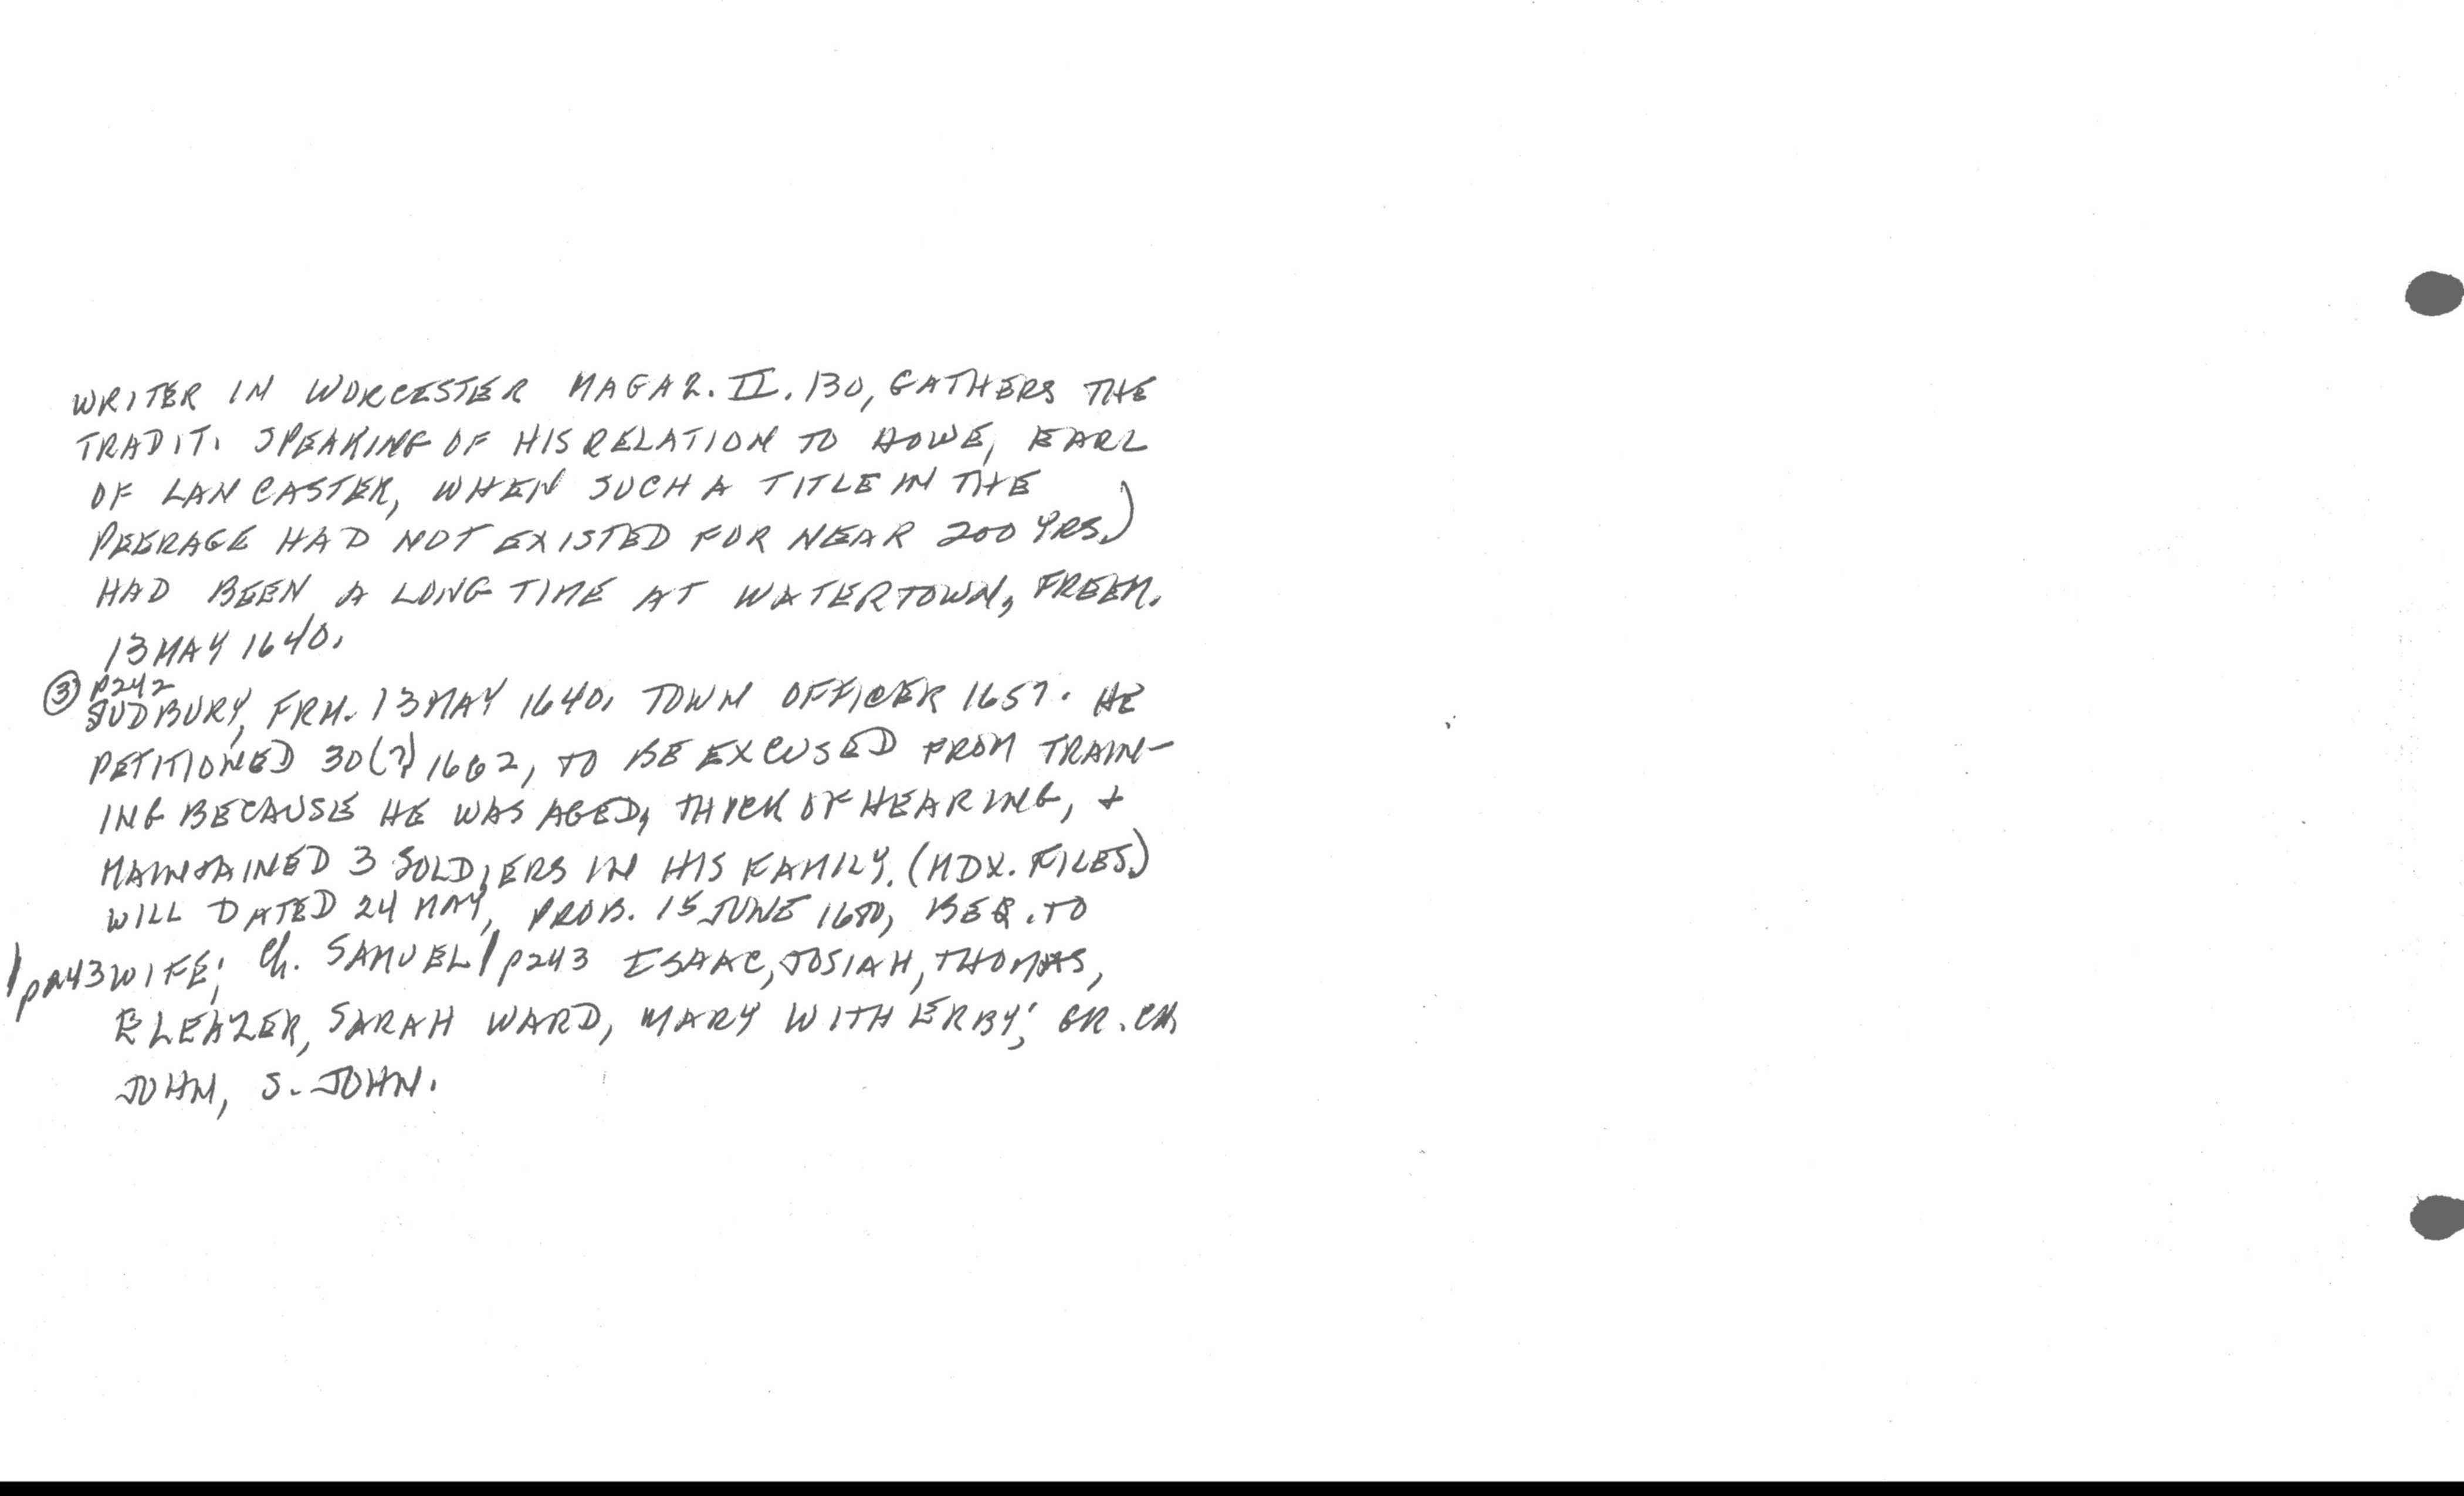 WRITER IN WORCESTER MAGAZ. II. 130, GATHERS THE
TRADIT. SPEAKING OF HIS RELATION TO HOWE, EARL
OF LANCASTER, WHEN SUCH A TITLE IN THE
PEERAGE HAD NOT EXISTED FOR NEAR 200 YRS.)
HAD BEEN A LONG TIME AT WATERTOWN, FREEM.
13 MAY 1640.
③ p242
SUDBURY, FRM. 13 MAY 1640. TOWN OFFICER 1657. HE
PETITIONED 30(?) 1662, TO BE EXCUSED FROM TRAIN-
ING BECAUSE HE WAS AGED, THICK OF HEARING, +
MAINTAINED 3 SOLDIERS IN HIS FAMILY. (MDX. FILES.)
WILL DATED 24 MAY, PROB. 15 JUNE 1680, BEQ. TO
/p243 WIFE; Ch. SAMUEL / p243 ISAAC, JOSIAH, THOMAS,
ELEAZER, SARAH WARD, MARY WITHERBY; GR. CH
JOHN, S. JOHN.